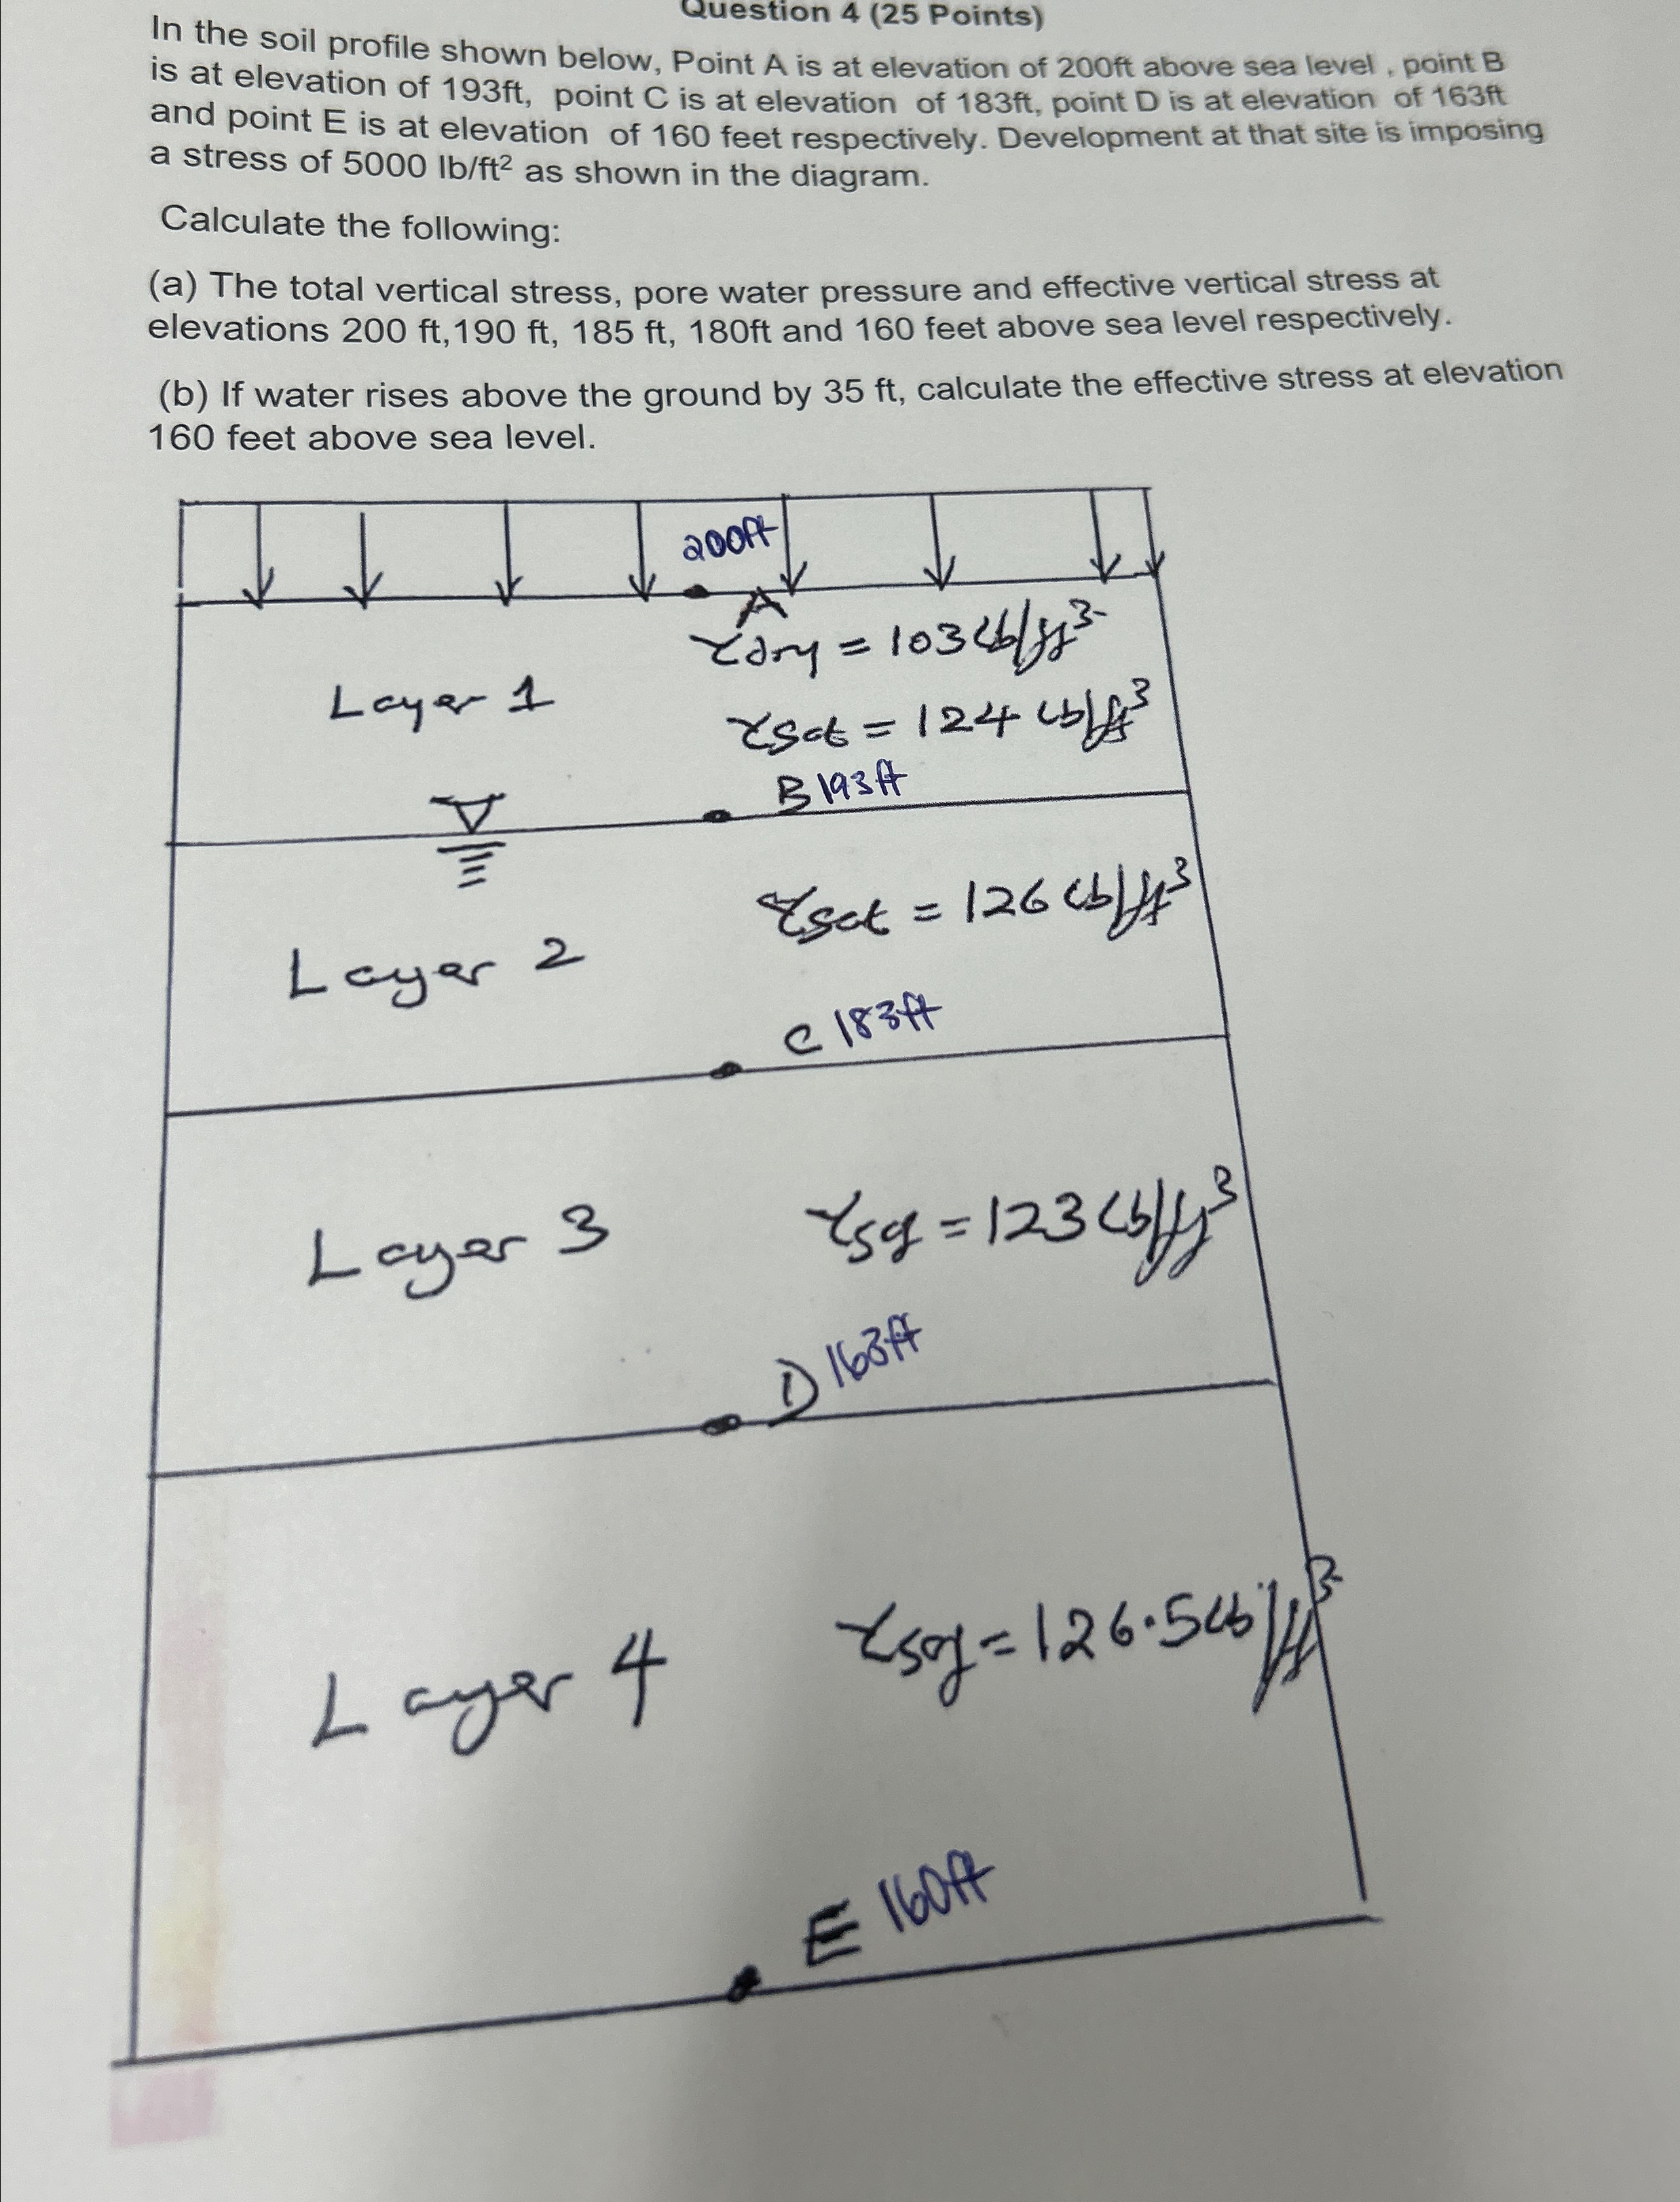 Question 4 (25 Points)
In the soil profile shown below, Point A is at elevation of 200ft above sea level , point B
is at elevation of 193ft, point C is at elevation of 183ft, point D is at elevation of 163ft
and point E is at elevation of 160 feet respectively. Development at that site is imposing
a stress of 5000 lb/ft² as shown in the diagram.
Calculate the following:
(a) The total vertical stress, pore water pressure and effective vertical stress at
elevations 200 ft,190 ft, 185 ft, 180ft and 160 feet above sea level respectively.
(b) If water rises above the ground by 35 ft, calculate the effective stress at elevation
160 feet above sea level.
200ft
A
γdry = 103 lb/ft³
Layer 1
γsat = 124 lb/ft³
B 193ft
γsat = 126 lb/ft³
Layer 2
C 183ft
Layer 3
γsat = 123 lb/ft³
D 163ft
Layer 4
γsat = 126.5 lb/ft³
E 160ft